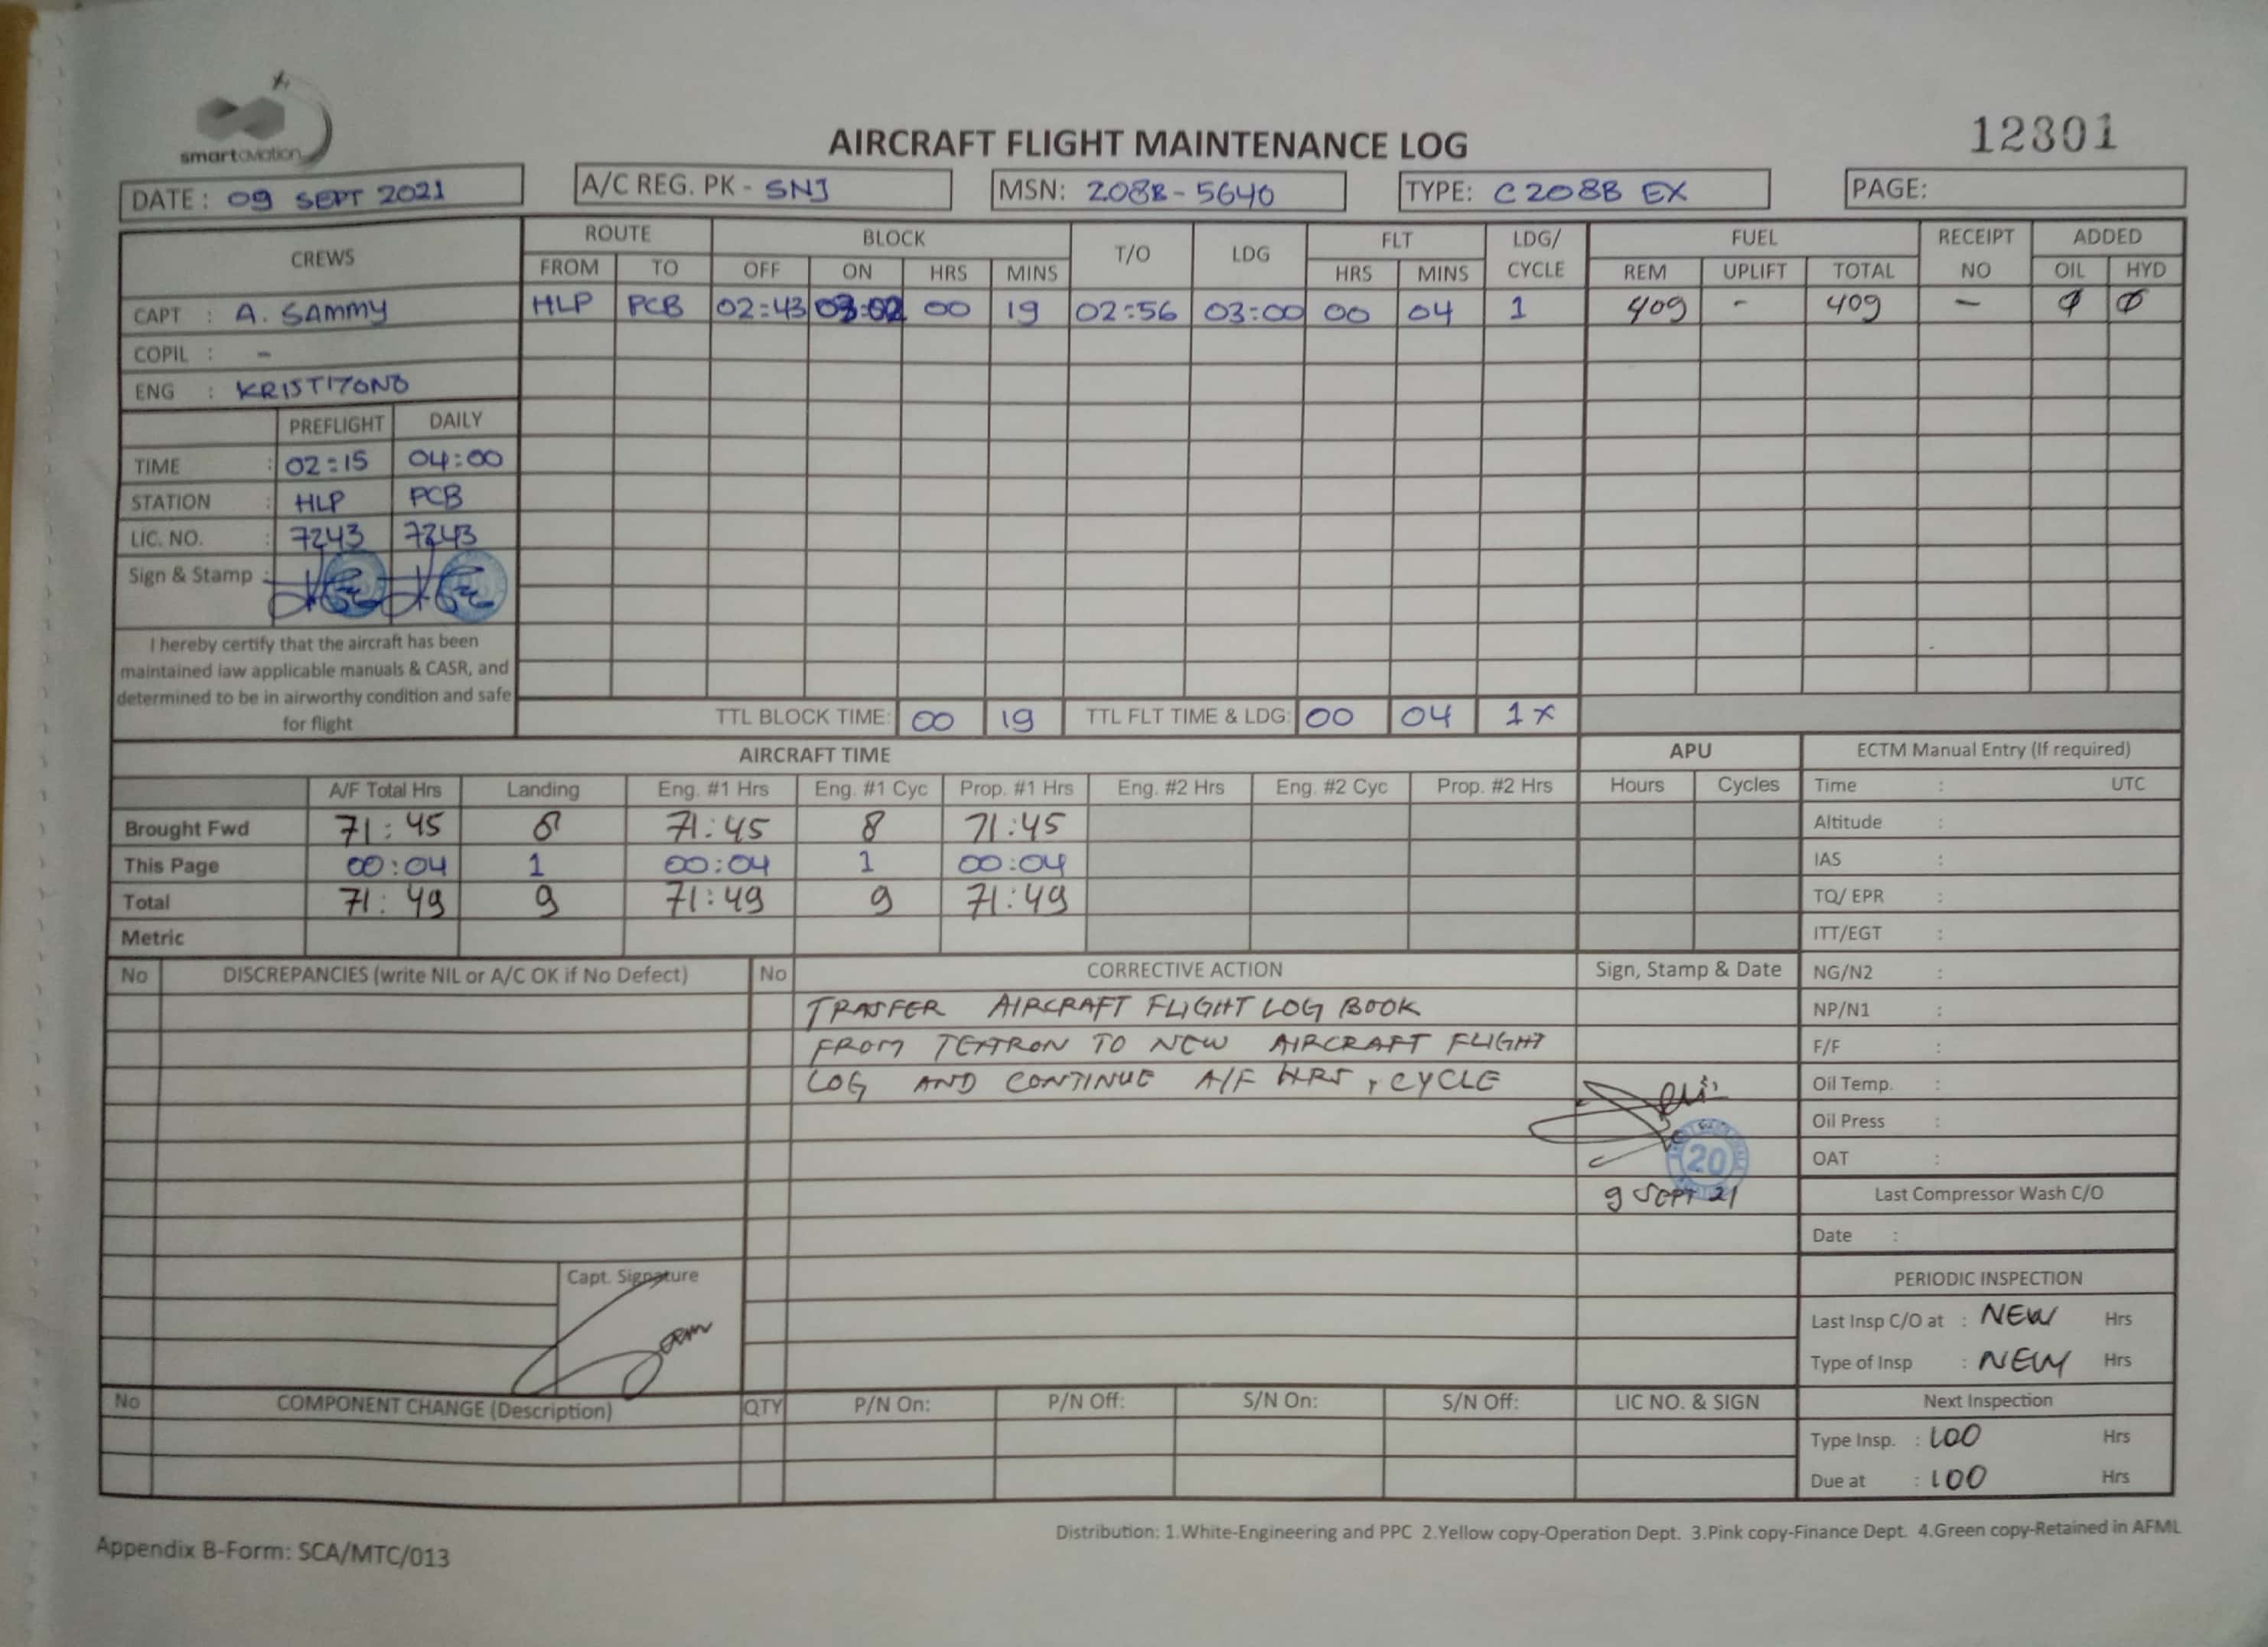 smartaviation
AIRCRAFT FLIGHT MAINTENANCE LOG
12301
DATE : 09 SEPT 2021
A/C REG. PK - SNJ
MSN: 208B - 5640
TYPE: C208B EX
PAGE:
CREWS ROUTE BLOCK T/O LDG FLT LDG/ CYCLE FUEL RECEIPT NO ADDED
FROM TO OFF ON HRS MINS HRS MINS REM UPLIFT TOTAL OIL HYD
CAPT : A. SAMMY HLP PCB 02:43 03:02 00 19 02:56 03:00 00 04 1 409 - 409 - Ø Ø
COPIL : -
ENG : KRISTIYONO
PREFLIGHT DAILY
TIME : 02:15 04:00
STATION : HLP PCB
LIC. NO. : 7243 7243
Sign & Stamp :
I hereby certify that the aircraft has been
maintained iaw applicable manuals & CASR, and
determined to be in airworthy condition and safe
for flight
TTL BLOCK TIME: 00 19 TTL FLT TIME & LDG: 00 04 1x
AIRCRAFT TIME APU ECTM Manual Entry (If required)
A/F Total Hrs Landing Eng. #1 Hrs Eng. #1 Cyc Prop. #1 Hrs Eng. #2 Hrs Eng. #2 Cyc Prop. #2 Hrs Hours Cycles Time : UTC
Brought Fwd 71:45 8 71:45 8 71:45 Altitude :
This Page 00:04 1 00:04 1 00:04 IAS :
Total 71:49 9 71:49 9 71:49 TQ/ EPR :
Metric ITT/EGT :
No DISCREPANCIES (write NIL or A/C OK if No Defect) No CORRECTIVE ACTION Sign, Stamp & Date NG/N2 :
TRASFER AIRCRAFT FLIGHT LOG BOOK NP/N1 :
FROM TEXTRON TO NEW AIRCRAFT FLIGHT F/F :
LOG AND CONTINUE A/F HRS, CYCLE Oil Temp. :
Oil Press :
20
OAT :
9 SEPT 21
Last Compressor Wash C/O
Date :
Capt. Signature
PERIODIC INSPECTION
Last Insp C/O at : NEW Hrs
Type of Insp : NEW Hrs
No COMPONENT CHANGE (Description) QTY P/N On: P/N Off: S/N On: S/N Off: LIC NO. & SIGN Next Inspection
Type Insp. : 100 Hrs
Due at : 100 Hrs
Distribution: 1.White-Engineering and PPC 2.Yellow copy-Operation Dept. 3.Pink copy-Finance Dept. 4.Green copy-Retained in AFML
Appendix B-Form: SCA/MTC/013